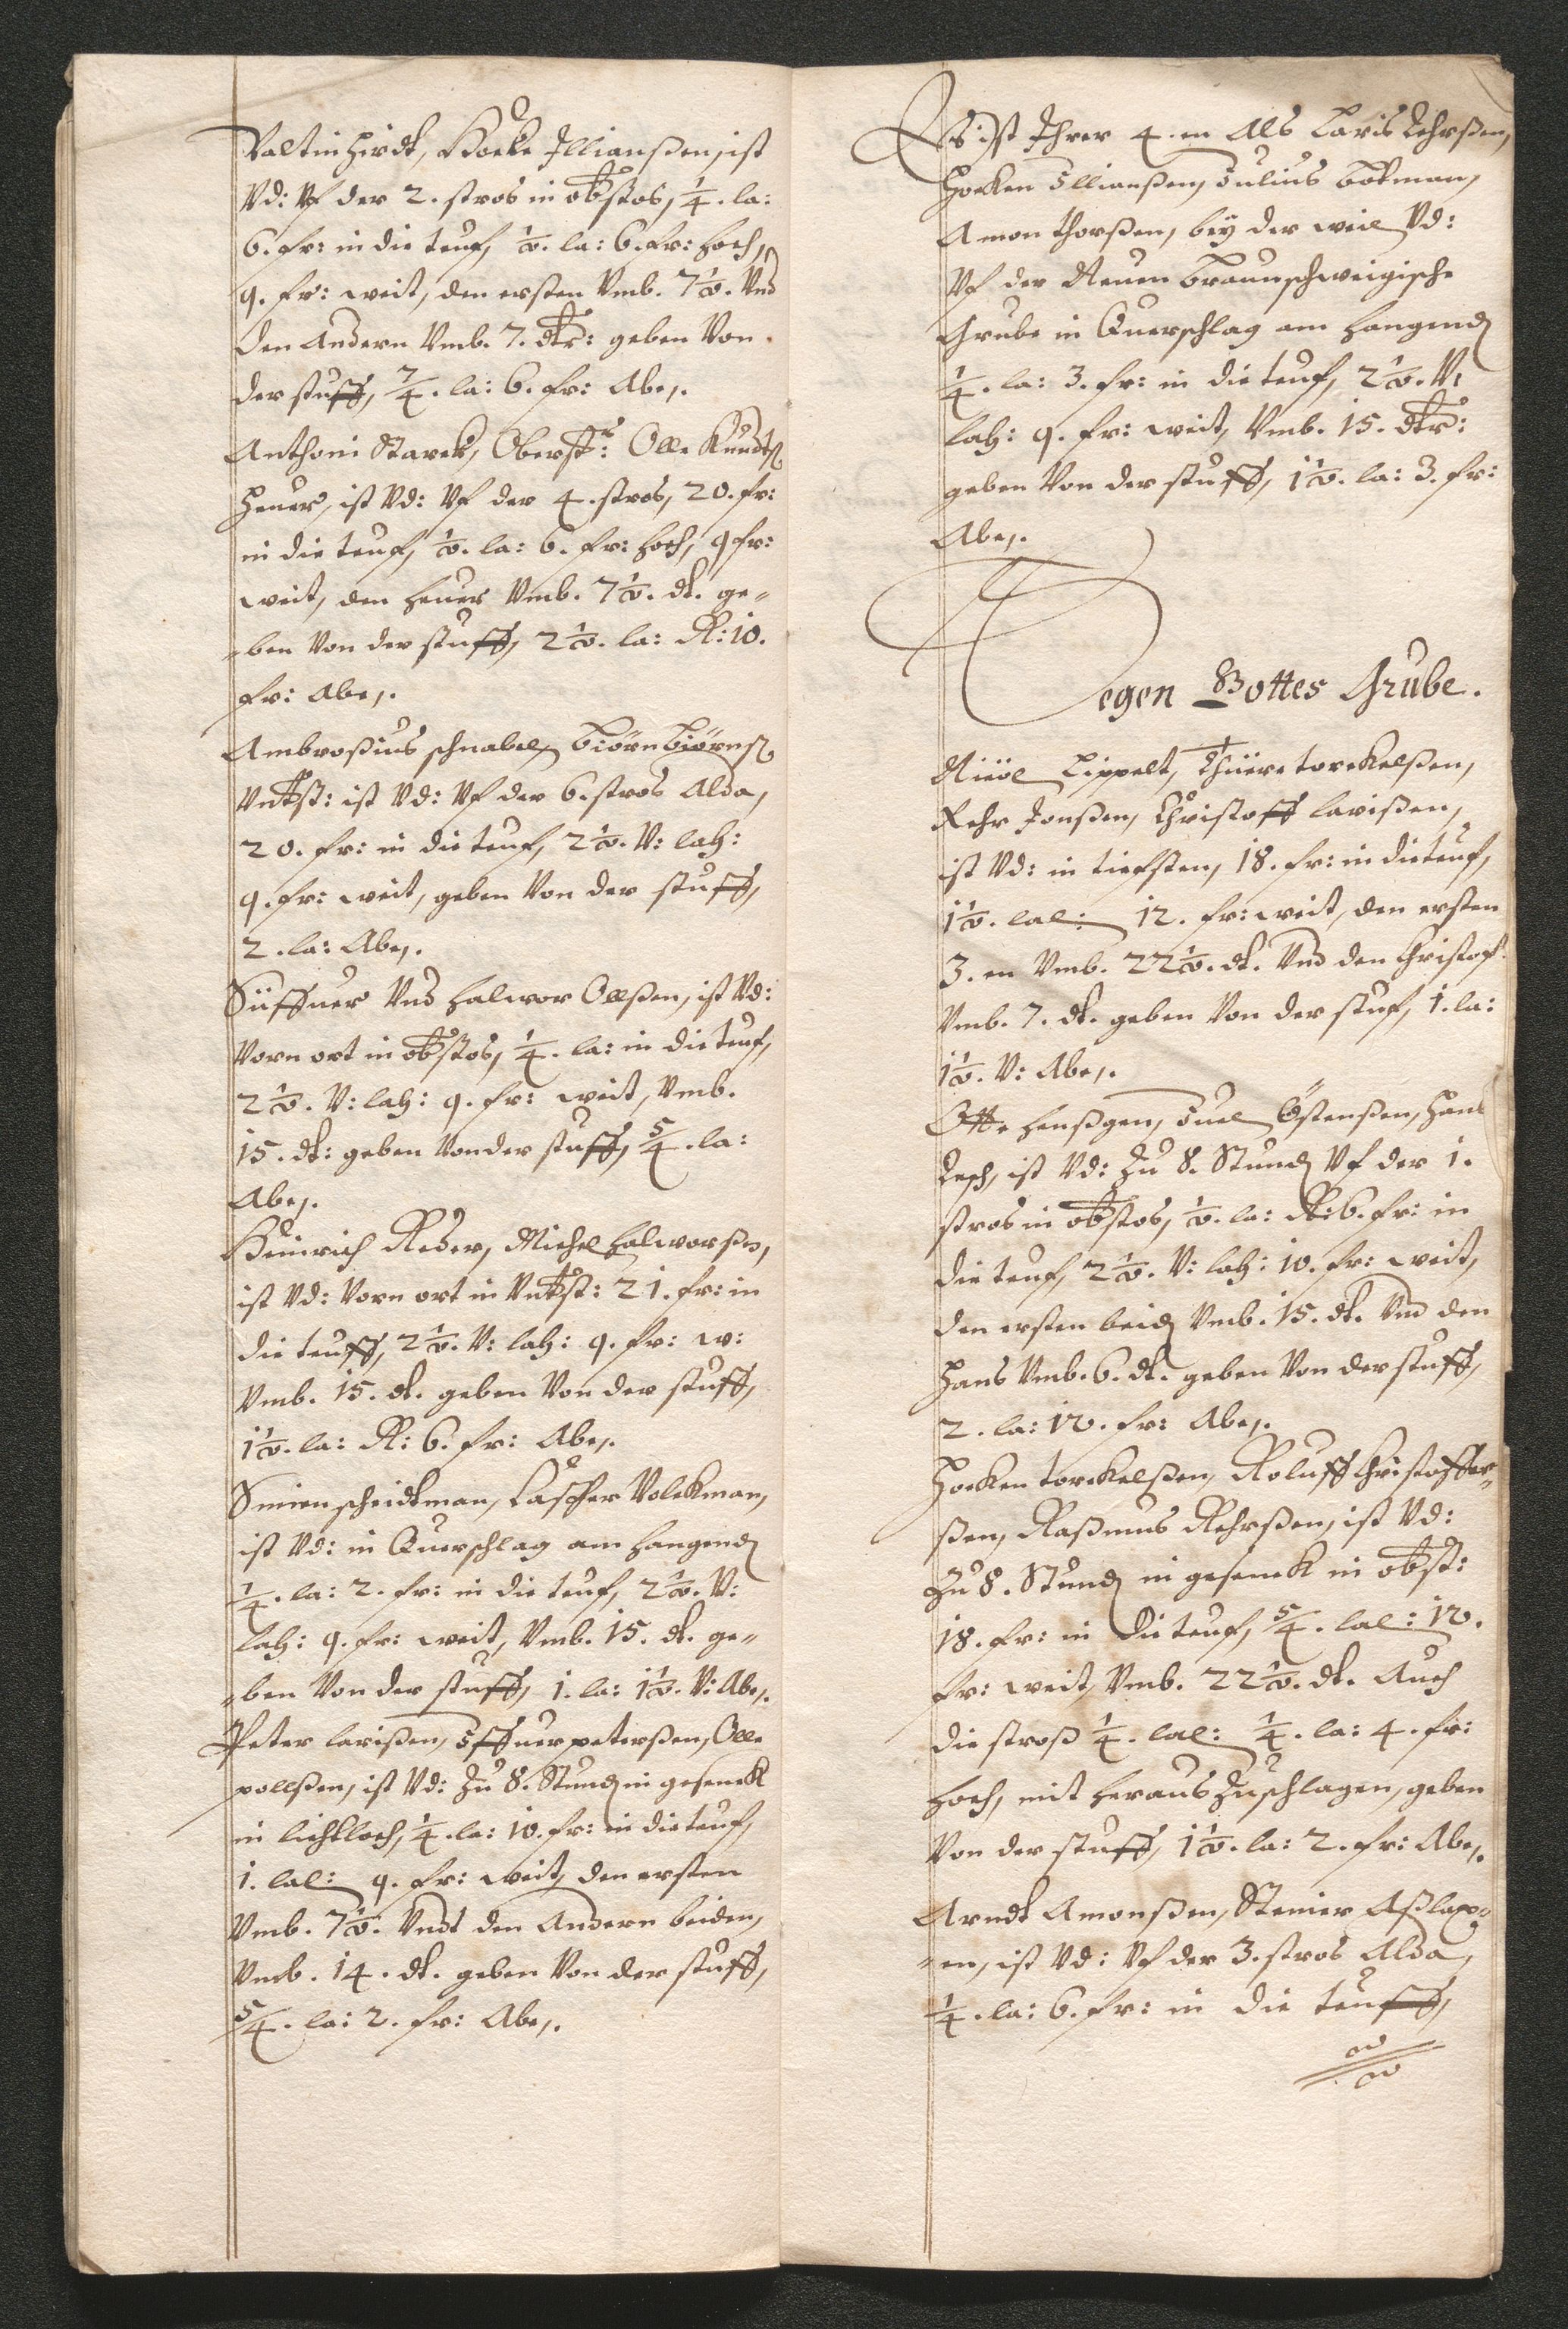 Valtin Hirdt, Hoeke Illianßen, ist
Vd: Vf der 2. stros in obstos, 1/4. la:
6. fr: in die teuf, 1/2. la: 6. fr: hoch,
9. fr: weit, den ersten Vmb. 7 1/2. Vnd
den Andern Vmb. 7. dlr: geben Von
der stuff, 7/4. la: 6. fr: Abe,.
Anthoni Starck, Oberstr: Olle Knudtß
Heuer, ist Vd: Vf der 4. stros, 20. fr:
in die teuf, 1/2. la: 6. fr: hoch, 9 fr:
weit, den heuer Vmb. 7 1/2. dl. ge„
„ben Von der stuff, 2 1/2. la: R: 10.
fr: Abe,.
Ambroßius schnabel, Biörn Biörnß
Vnttst: ist Vd: Vf der 6. stros Alda,
20. fr: in die teuf, 2 1/2. V: lach:
9. fr: weit, geben Von der stuff,
2. la: Abe,.
Süffuer Vnd Halwor Ollßen, ist Vd:
Vorn ort in obstos, 1/4. la: in die teuf,
2 1/2. V: lach: 9. fr: weit, Vmb.
15. dl: geben Von der stuff, 5/4. la:
Abe,.
Heinrich Reder, Michel Halworßen,
ist Vd: Vorn ort in Vnttst: 21. fr: in
die teuff, 2 1/2. V: lach: 9. fr: w:
Vmb. 15. dl. geben Von der stuff,
1 1/2. la: R: 6. fr: Abe,.
Simen scheidtman, Casper Volckman,
ist Vd: in Querschlag am hangend
1/4. la: 2. fr: in die teuf, 2 1/2. V:
lach: 9. fr: weit, Vmb. 15. dl. ge„
„ben Von der stuff, 1. la: 1 1/2. V: Abe,.
Peter larißen, Siffuer peterßen, Olle
pollßen, ist Vd: Zu 8. Stund in gesenck
in lichtloch, 1/4. la: 10. fr: in die teuf,
1. lal: 9. fr: weit, den ersten
Vmb. 7 1/2. Vndt den Andern beiden,
Vmb. 14. dl. geben Von der stuff,
5/4. la: 2. fr: Abe,.
Es ist Ihrer 4. en Als Laris Rehrßen,
Hoeken Illianßen, Julius Bötman,
Amon thorßen, bey der weil Vd:
Vf der Neuen Braunschweigische
Grube in Querschlag am hangend
1/4. la: 3. fr: in die teuf, 2 1/2. V:
lach: 9. fr: weit, Vmb. 15. dlr:
geben Von der stuff, 1 1/2. la: 3. fr:
Abe,.
Segen Gottes Grube.
Nicol Lippelt, Thüere torckelßen,
Rehr Jonßen, Christoff larißen,
ist Vd: in tiefsten, 18. fr: in die teuf,
1 1/2. lal: 12. fr: weit, den ersten
3. en Vmb. 22 1/2. dl. Vnd den Christof
Vmb. 7. dl. geben Von der stuf, 1. la:
1 1/2. V: Abe,.
Otto Henßgen, Juel Östenßen, Hans
Resch, ist Vd: Zu 8. Stund Vf der 1.
stros in obstos, 1/2. la: R: 6. fr: in
die teuf, 2 1/2. V: lach: 10. fr: weit,
den ersten beid Vmb. 15. dl. Vnd den
Hans Vmb. 6. dl. geben Von der stuff,
2. la: 12. fr: Abe,.
Hoeken torckelßen, Roluff Christoffer„
ßen, Raßmus Rehrßen, ist Vd:
Zu 8. Stund in gesenck in obst:
18. fr: in die teuf, 5/4. lal: 12.
fr: weit, Vmb. 22 1/2. dl. Auch
die stroß 1/4. lal: 1/4. la: 4. fr:
hoch, mit heraus Zuschlagen, geben
Von der stuff, 1 1/2. la: 2. fr: Abe,.
Arndt Amonßen, Steiner Aßlax„
„en, ist Vd: Vf der 3. stros Alda,
1/4. la: 6. fr: in die teuff,